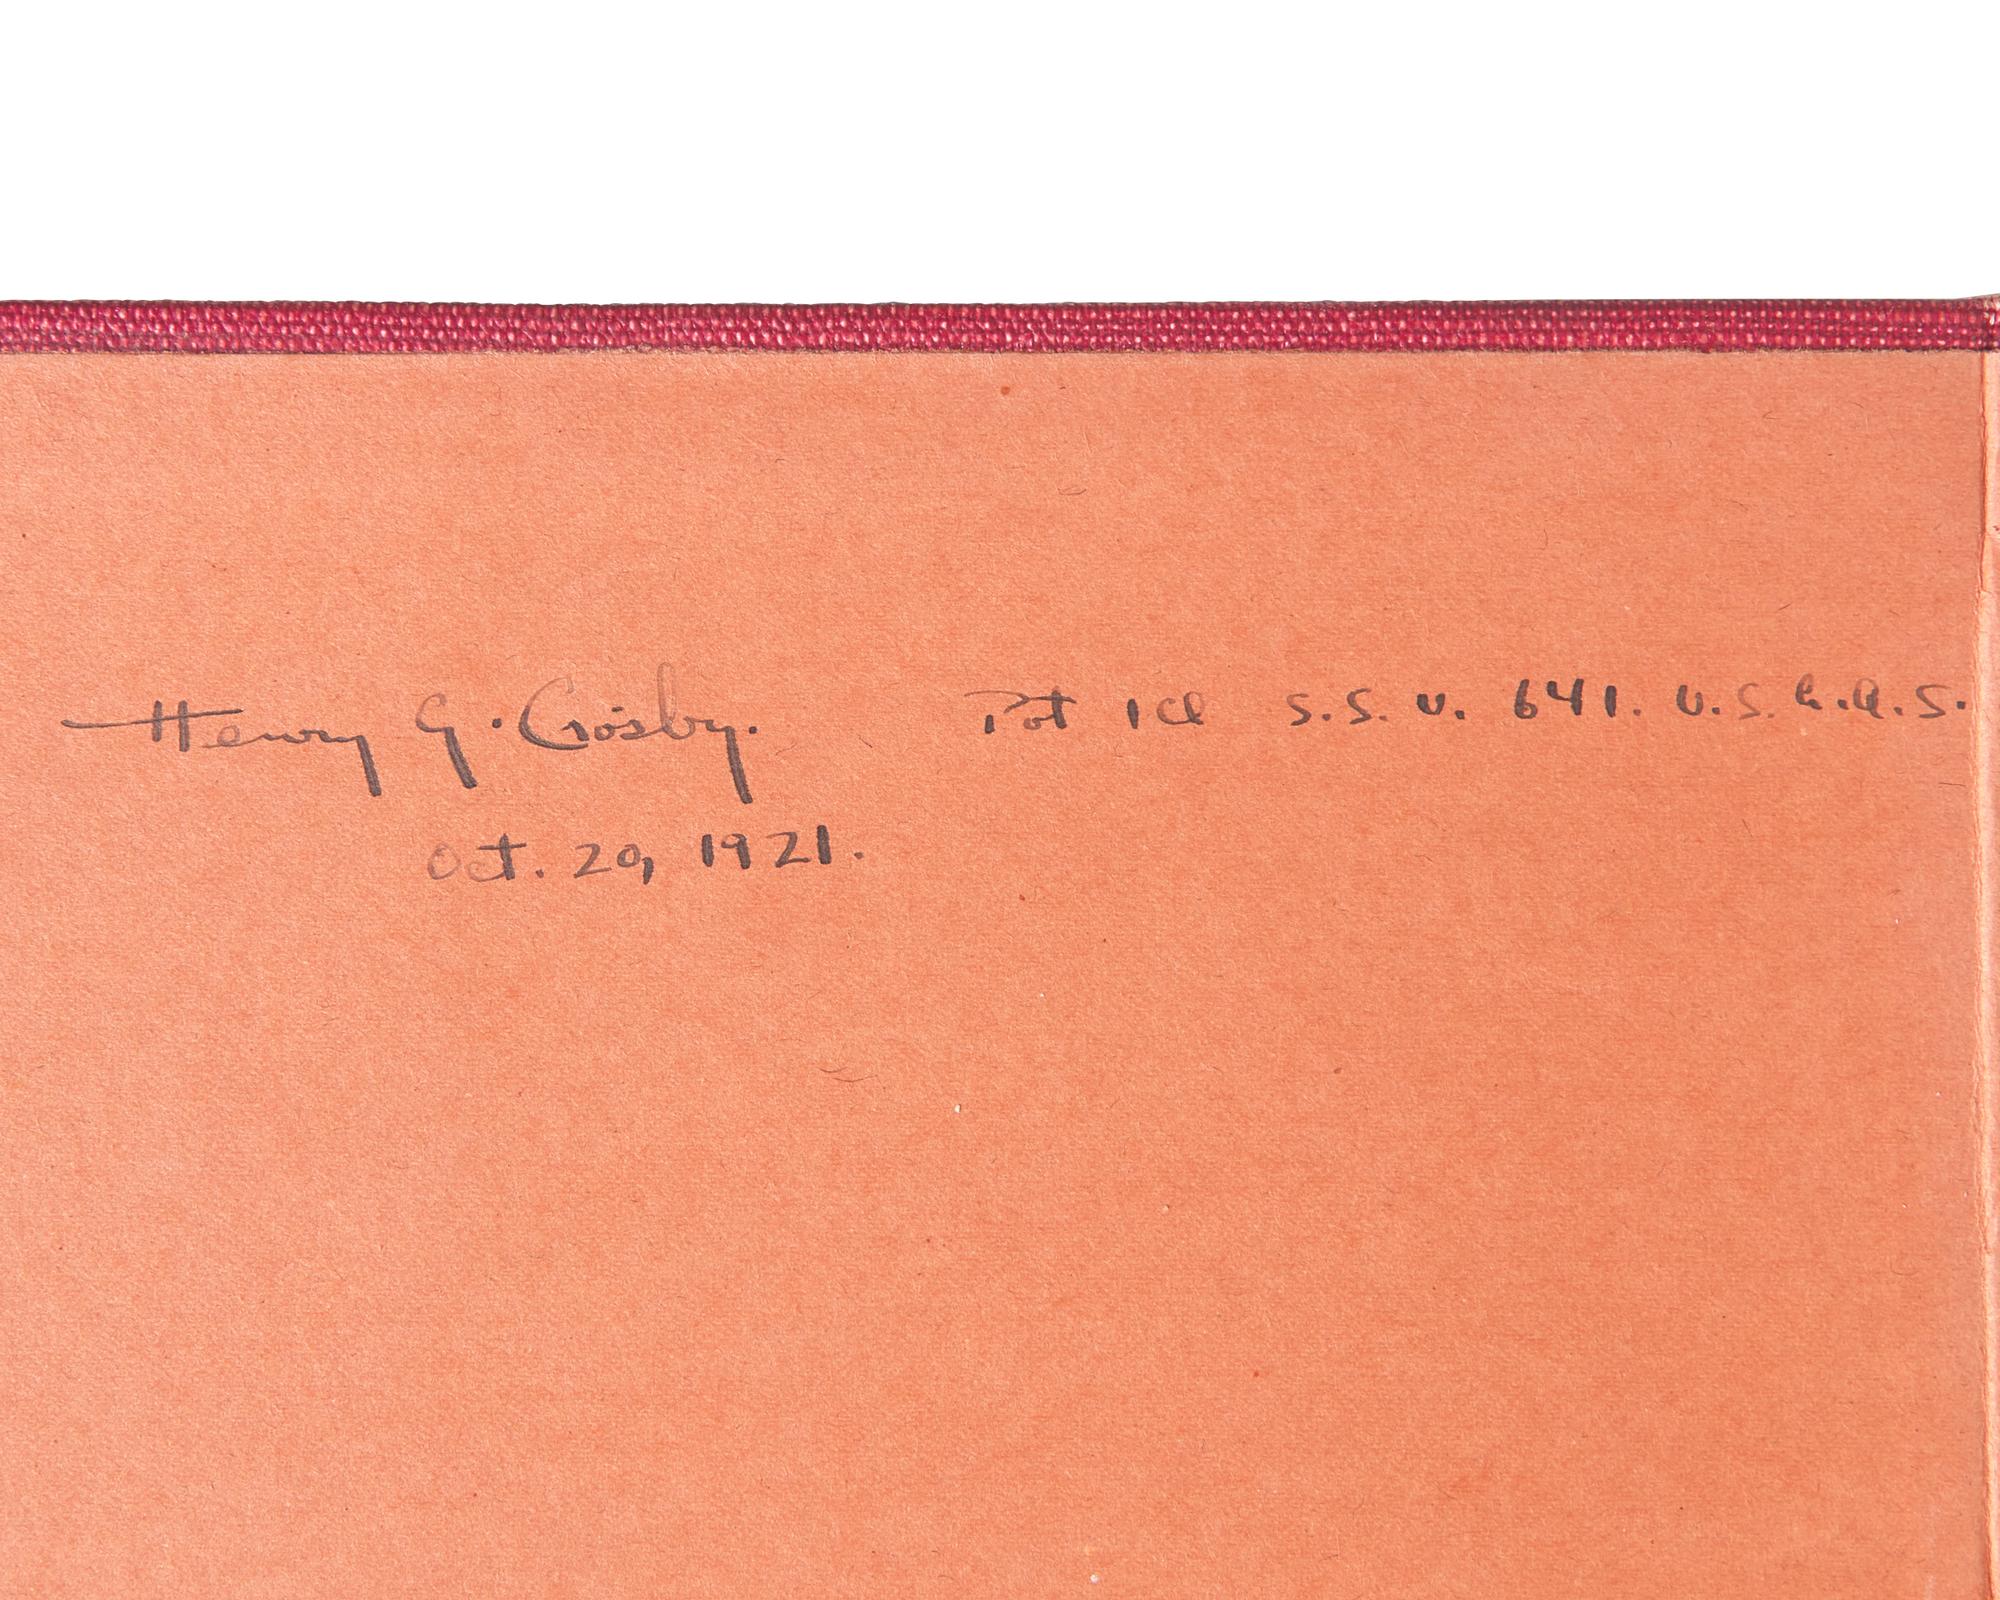 Henry G. Crosby. Pvt 1Cl S.S.U. 641. U.S.A.A.S.
Oct. 20, 1921.